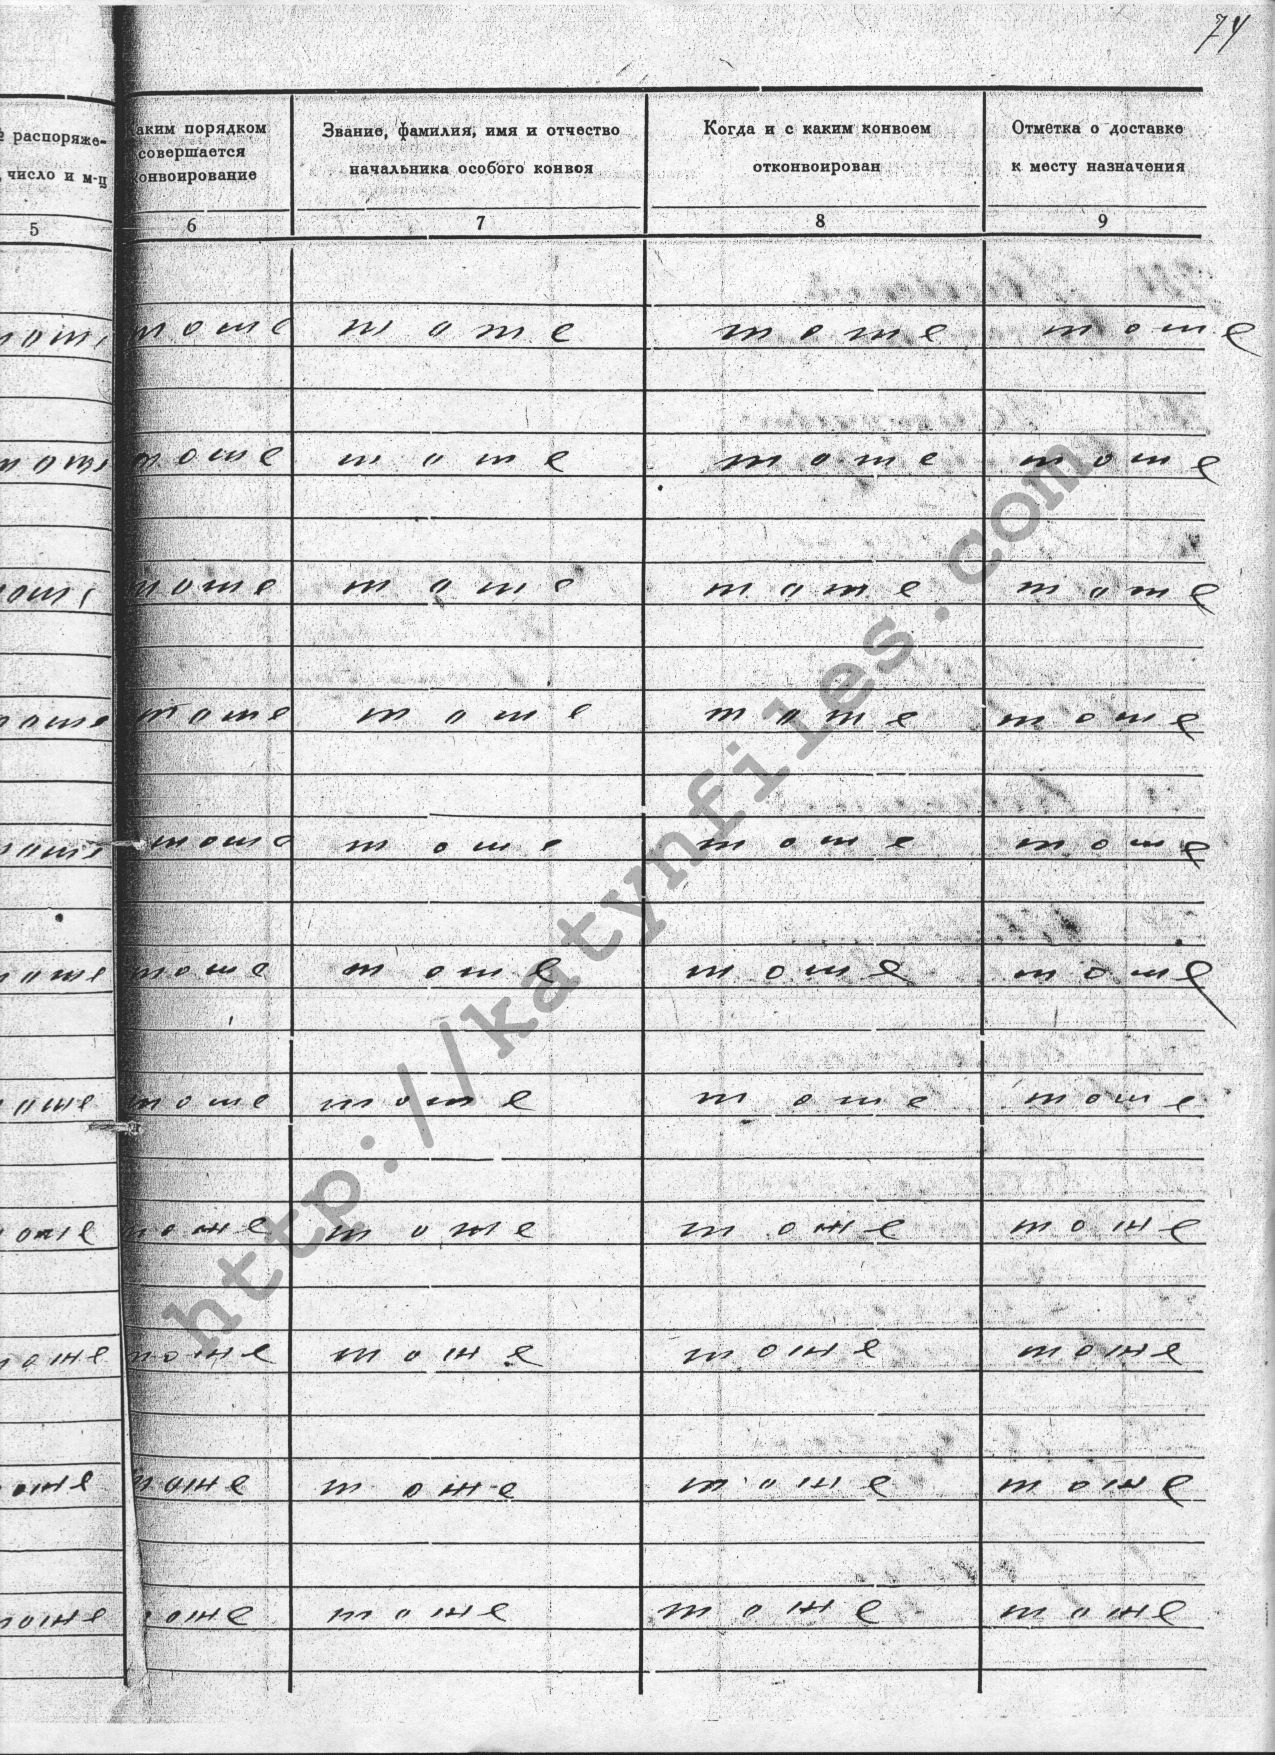 74
распоряже- Каким порядком Звание, фамилия, имя и отчество Когда и с каким конвоем Отметка о доставке
число и м-ц совершается начальника особого конвоя отконвоирован к месту назначения
конвоирование
5 6 7 8 9
тоже тоже тоже тоже тоже
тоже тоже тоже тоже тоже
тоже тоже тоже тоже тоже
тоже тоже тоже тоже тоже
тоже тоже тоже тоже тоже
тоже тоже тоже тоже тоже
тоже тоже тоже тоже тоже
тоже тоже тоже тоже тоже
тоже тоже тоже тоже тоже
тоже тоже тоже тоже тоже
тоже тоже тоже тоже тоже
http://katynfiles.com